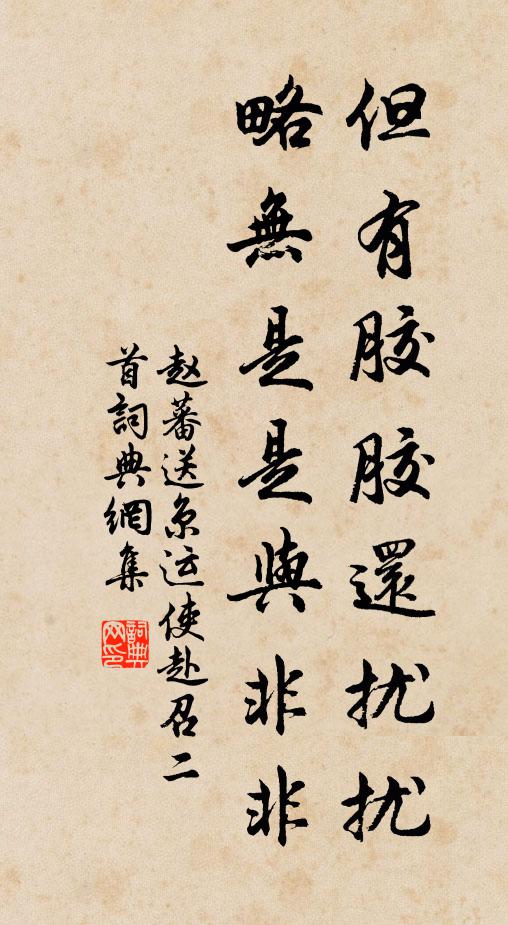 但有胶胶還扰扰
略無是是與非非
赵蕃送京运使赴召二
首詞典網集
詞典网印